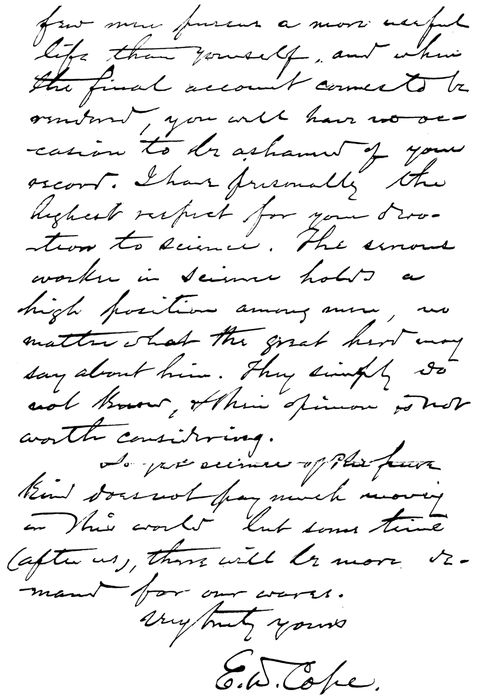 few men pursue a more useful
life than yourself, and when
the final account comes to be
rendered, you will have no oc-
casion to be ashamed of your
record. I have personally the
highest respect for your devo-
tion to science. The serious
worker in science holds a
high position among men, no
matter what the great herd may
say about him. They simply do
not know, & their opinion is not
worth considering.
As yet science of the pure
kind does not pay much money
in this world but some time
(after us), there will be more de-
mand for our wares.
Very truly yours
E. D. Cope.